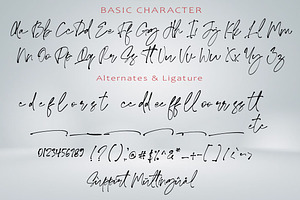 BASIC CHARACTER
Aa Bb Cc Dd Ee Ff Gg Hh Ii Jj Kk Ll Mm
Nn Oo Pp Qq Rr Ss Tt Uu Vv Ww Xx Yy Zz
Alternates & Ligature
c d e f l o r s t cc dd ee ff ll oo rr ss tt
etc
0123456789 ( ? ( ) ; @ # $ % ^ & * _ - + - [ ] { ; " < >
Support Multilingual